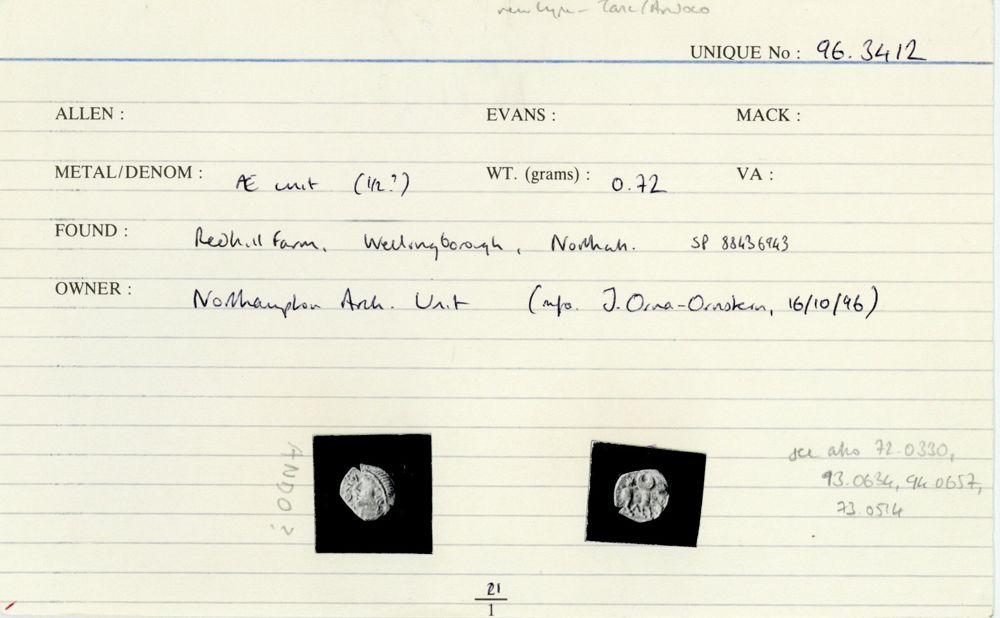 new type - Tasc/Andoco
UNIQUE No : 96.3412
ALLEN : EVANS : MACK :
METAL/DENOM : Æ unit (1/2?) WT. (grams) : 0.72 VA :
FOUND : Redhill Farm, Wellingborough, Northan. SP 88436943
OWNER : Northampton Arch. Unit (info. J. Orna-Ornstein, 16/10/96)
ANDO?
see also 72.0330,
93.0634, 94.0657,
73.0514
21
1